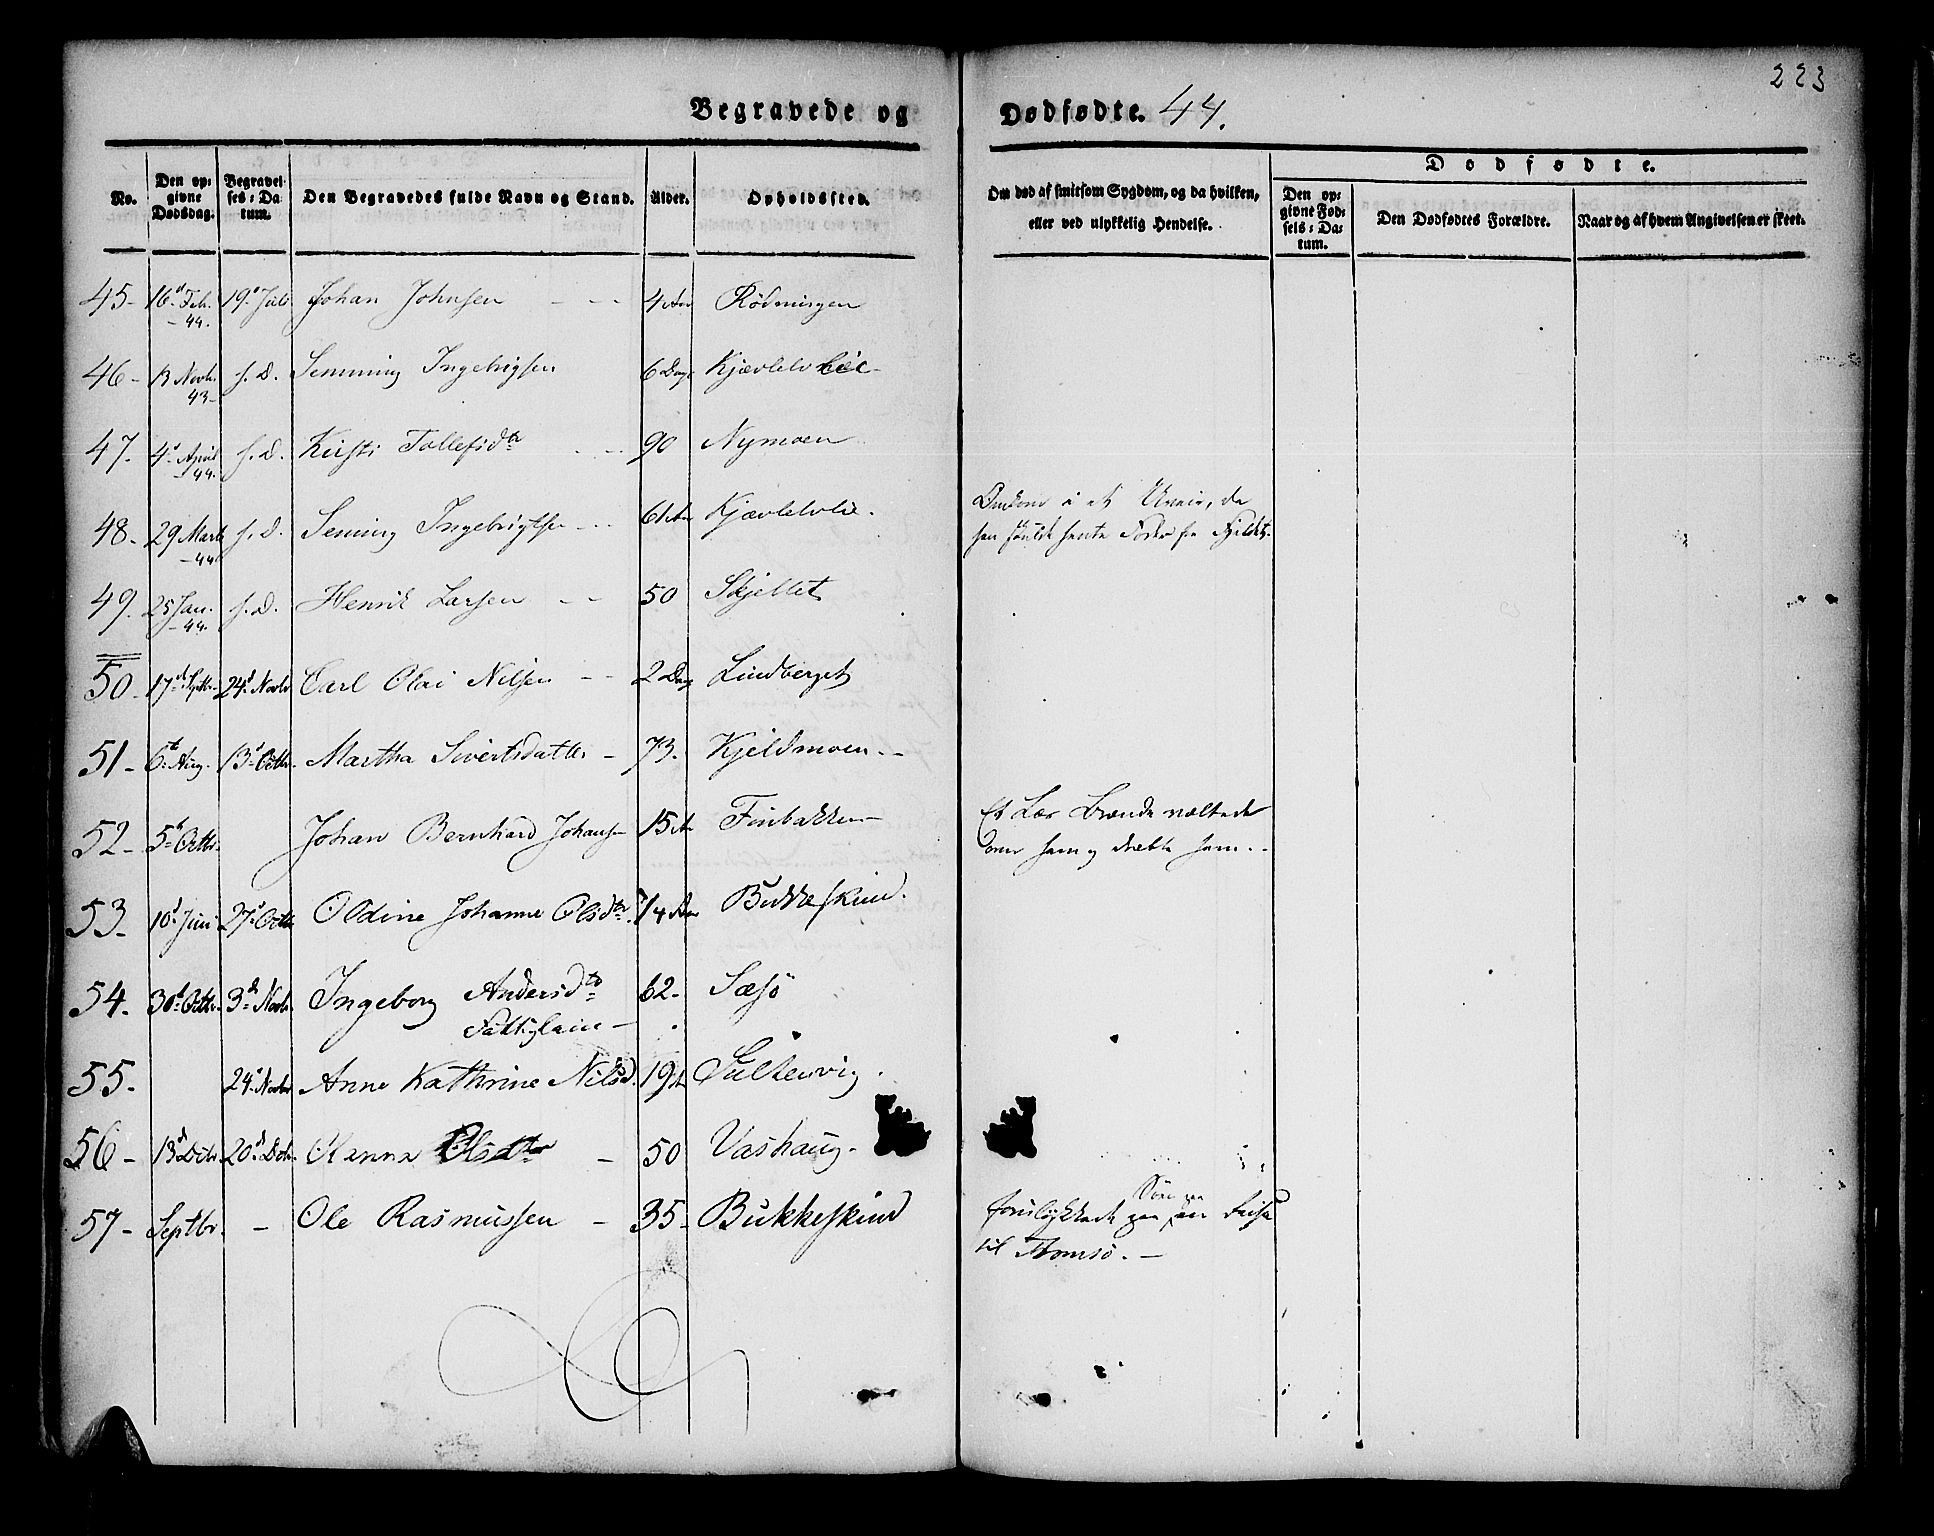 223
Begravede og Dødfødte. 44.
No.
Den op-
givne
Dødsdag.
Begravel-
ses-Da-
tum.
Den Begravedes fulde Navn og Stand.
Alder.
Opholdssted.
Om død af smitsom Sygdom, og da hvilken,
eller ved ulykkelig Hendelse.
Dødfødte.
Den op-
givne Fød-
sels-Da-
tum.
Den Dødfødtes Forældre.
Naar og af hvem Angivelsen er skeet.
45- 16d Feb. -44. 19d Juli Johan Johnsen - - 4 Aar Rödningen
46- 13 Novb. 43- s. D. Semming Ingebrigtsen 6 Dage Kjævlelvlie-
47. 4d April -44. s. D. Kirsti Tollefsdtr 90 Nymoen
48- 29 Marts -44 s. D. Seming Ingebrigtsen - - 61 Aar Kjævlelvlie.
Omkom i et Uveir, da
han skulde hente Foder fra Fjeldet.
49. 25 Jan. -44. s. D. Henrik Larsen - - 50 Skjellet
50- 17d Septbr. 24d Novbr Carl Olai Nilsen - - 2 Dage Lindberget
51- 6t Aug. 13d Octbr. Martha Sivertsdatter - 73. Kjeldmoen.-
52- 5t Octbr. Johan Bernhard Johansen 15 Aar Finbakken-
Et Læs Brænde væltede
over ham og dræbte ham.-
53- 10d Juni 27d Octbr Oldine Johanne Olsdtr. 14 Aar Bukkeskind.
54. 30d Octbr. 3d Novbr. Ingeborg Andersdtr 62- Sæsö
Fattiglem -
55. 24d Novbr Anne Kathrine Nilsd. 19 Sultenvig.
56- 13d Dcbr. 20d Dcbr. Olsdtr - 50 Vashaug-
57- Septbr. - Ole Rasmussen - 35- Bukkeskind
forulykkede paa en Reise
til Tromsö. -